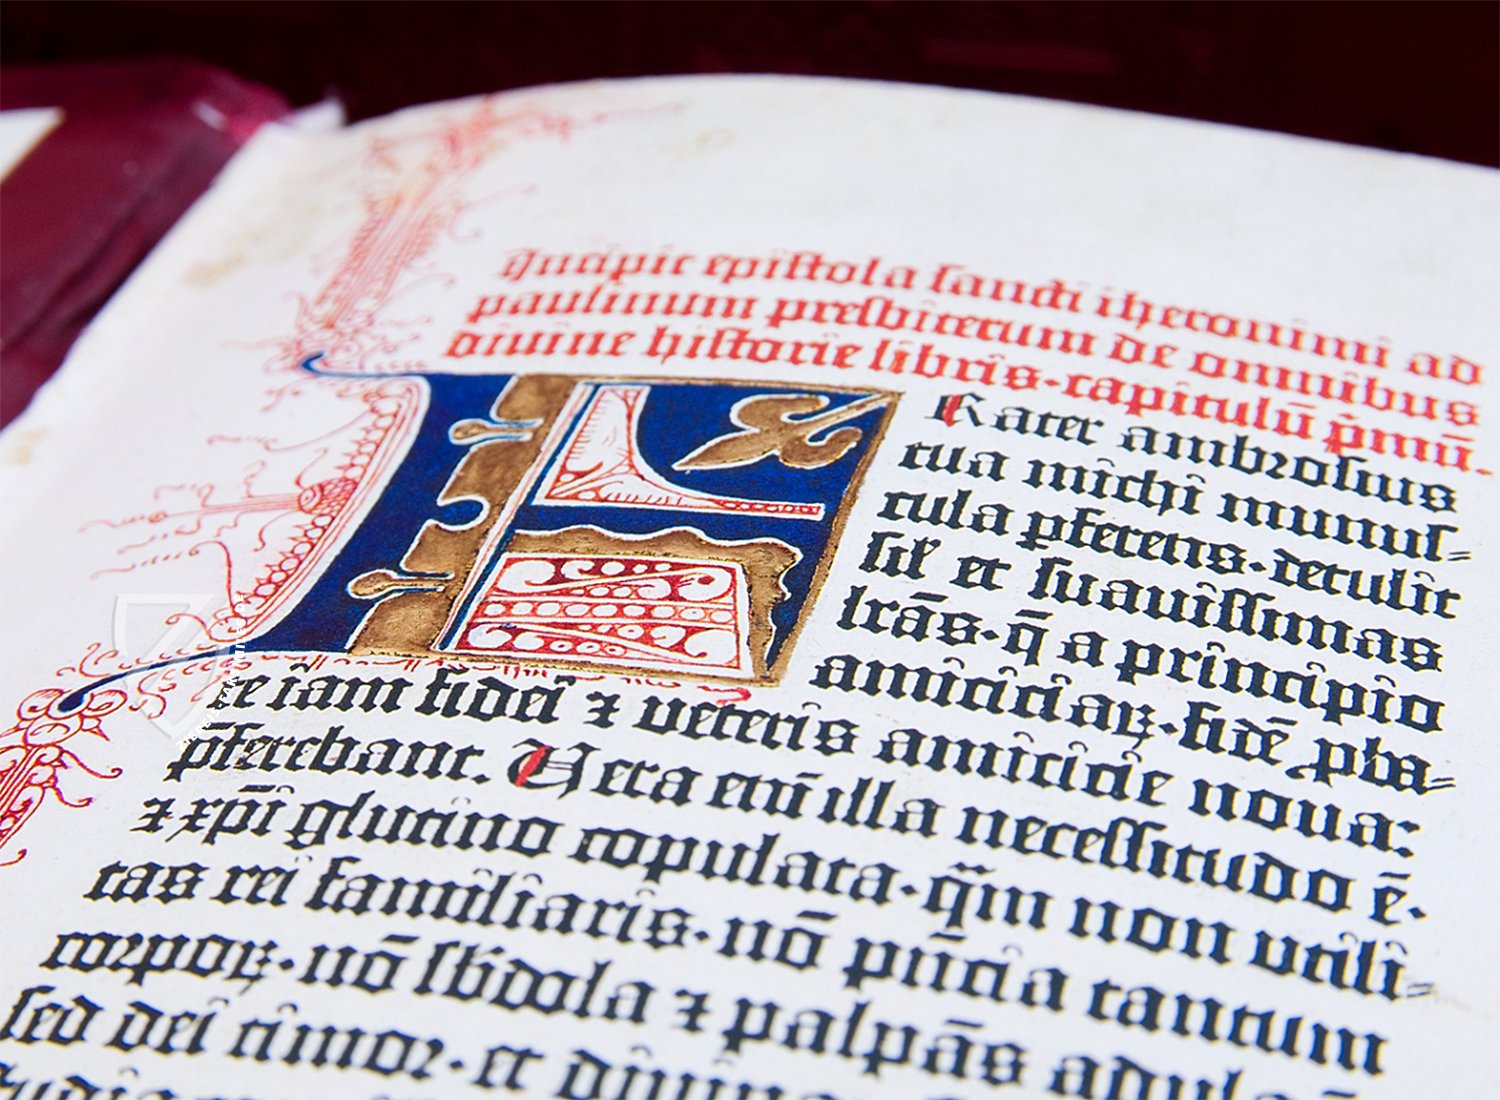 Incipit epistola sancti iheronimi ad
paulinum presbiterum de omnibus
divine historie libris·capitulū p̄mū.
F Rater ambrosius
tua michi munus-
cula pferens·detulit
sil' et suavissimas
lrās·q̄ a principio
amiciciaꝝ·fidē pba-
te iam fidei ⁊ veteris amicicie nova:
p̄ferebant. Vera eni illa necessitudo ē·
⁊ xpī glutino copulata·q̄m non utili-
tas rei familiaris·nō pn̄cia tantum
corpoꝝ·nō sbdola ⁊ palpās adulaō
sed dei timor·et divina